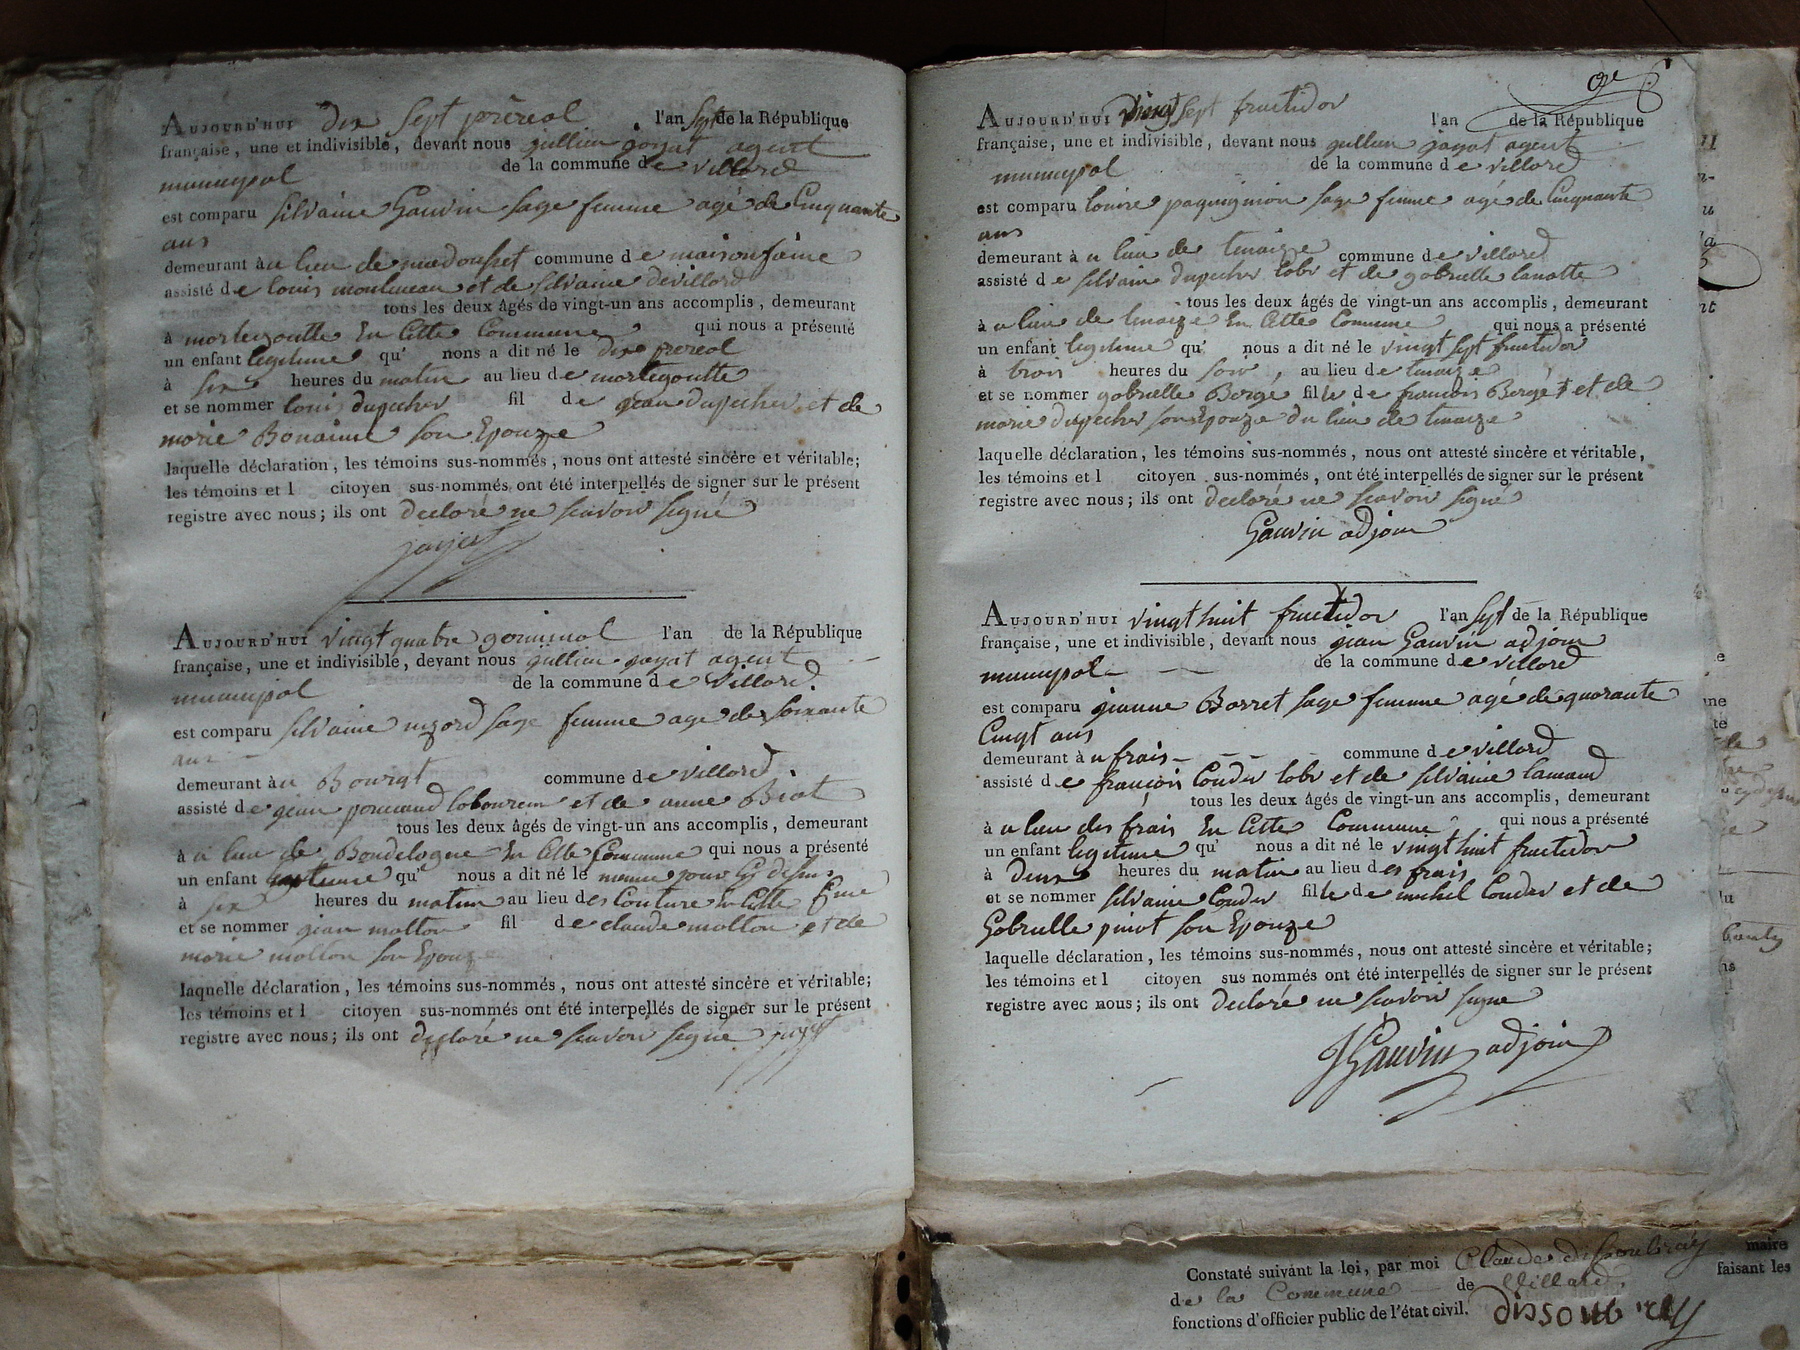 AUJOURD'HUI dix sept prereal l'an sept de la République
française, une et indivisible, devant nous jullien jayat agent
municipal de la commune de villard
est comparu silvaine Gauvin sage femme agé de Cinquante
ans
demeurant àu lieu de commune de maisonfaine
assisté de louis moulineau et de silvaine devillard
tous les deux âgés de vingt-un ans accomplis, demeurant
à mortegoutte En Cette Commune qui nous a présenté
un enfant legitime qu' nons a dit né le dix prereal
à six heures du matin au lieu de mortegoutte
et se nommer louis dupecher fil de jean dupecher et de
marie Bonainne son Epouze
laquelle déclaration, les témoins sus-nommés, nous ont attesté sincère et véritable;
les témoins et l citoyen sus-nommés ont été interpellés de signer sur le présent
registre avec nous; ils ont declaré ne scavoir signé
jayat
AUJOURD'HUI vingt quatre germinal l'an de la République
française, une et indivisible, devant nous jullien jayat agent
municipal de la commune de villard
est comparu silvaine sage femme age de soixante
ans
demeurant àu Bourgt commune de villard
assisté de jean laboureur et de anne Biat
tous les deux âgés de vingt-un ans accomplis, demeurant
à u lieu de Boudelogne En Cette Commune qui nous a présenté
un enfant legitime qu' nous a dit né le meme jour Cy desus
à six heures du matin au lieu des Couture En Cette Cmne
et se nommer jean molton fil de claude molton et de
marie molton son Epouze
laquelle déclaration, les témoins sus-nommés, nous ont attesté sincère et véritable;
les témoins et l citoyen sus-nommés ont été interpellés de signer sur le présent
registre avec nous; ils ont declaré ne scavoir signé jayat
AUJOURD'HUI vingt sept fructidor l'an de la République
française, une et indivisible, devant nous jullien jayat agent
municipal de la commune de villard
est comparu louise paquignion sage femme agé de Cinquante
ans
demeurant à u lieu de linaize commune de villard
assisté de silvain dupecher labr et de gabrielle lanotte
tous les deux âgés de vingt-un ans accomplis, demeurant
à u lieu de linaize En Cette Commune qui nous a présenté
un enfant legitime qu' nous a dit né le vingt sept fructidor
à trois heures du soir, au lieu de linaize
et se nommer gabrielle Bergé fille de francois Bergé et de
marie dupecher son Epouze du lieu de linaize
laquelle déclaration, les témoins sus-nommés, nous ont attesté sincère et véritable,
les témoins et l citoyen sus-nommés, ont été interpellés de signer sur le présent
registre avec nous; ils ont declaré ne scavoir signé
Gauvin adjoin
AUJOURD'HUI vingt huit fructidor l'an sept de la République
française, une et indivisible, devant nous jean Gauvin adjoin
municipal de la commune de villard
est comparu jeanne Barret sage femme agé de quarante
Cingt ans
demeurant à u frais commune de villard
assisté de françois Couder labr et de silvaine lamaud
tous les deux âgés de vingt-un ans accomplis, demeurant
à u lieu des frais En Cette Commune qui nous a présenté
un enfant legitime qu' nous a dit né le vingt huit fructidor
à deux heures du matin au lieu des frais
et se nommer silvaine Couder fille de michel Couder et de
Gabrielle pinot son Epouze
laquelle déclaration, les témoins sus-nommés, nous ont attesté sincère et véritable;
les témoins et l citoyen sus nommés ont été interpellés de signer sur le présent
registre avec nous; ils ont declaré ne scavoir signé
JGauvin adjoin
Constaté suivant la loi, par moi Claude dissoubray maire
de la Commune de Villard faisant les
fonctions d'officier public de l'état civil. dissoubray